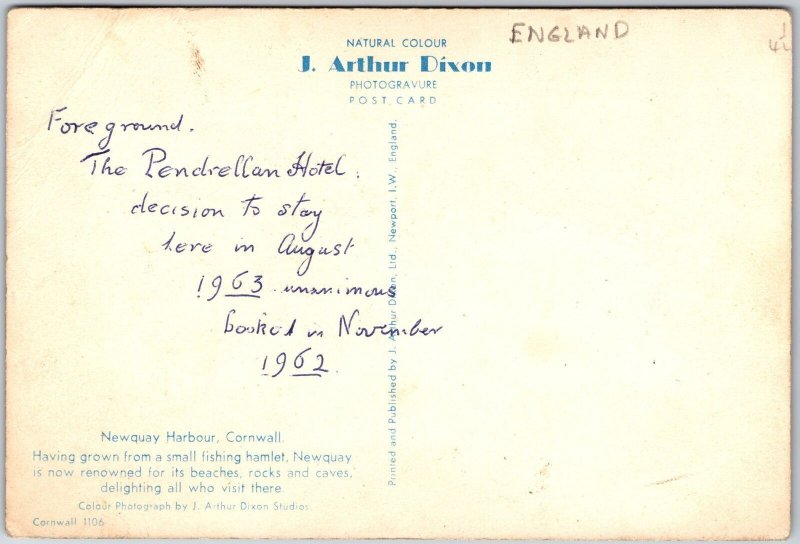 NATURAL COLOUR
J. Arthur Dixon
PHOTOGRAVURE
POST CARD
ENGLAND
Foreground.
The Pendrellan Hotel.
decision to stay
here in August
1963 unanimous
booked in November
1962.
Printed and Published by J. Arthur Dixon, Ltd., Newport, I.W., England.
Newquay Harbour, Cornwall.
Having grown from a small fishing hamlet, Newquay
is now renowned for its beaches, rocks and caves,
delighting all who visit there.
Colour Photograph by J. Arthur Dixon Studios
Cornwall 1106